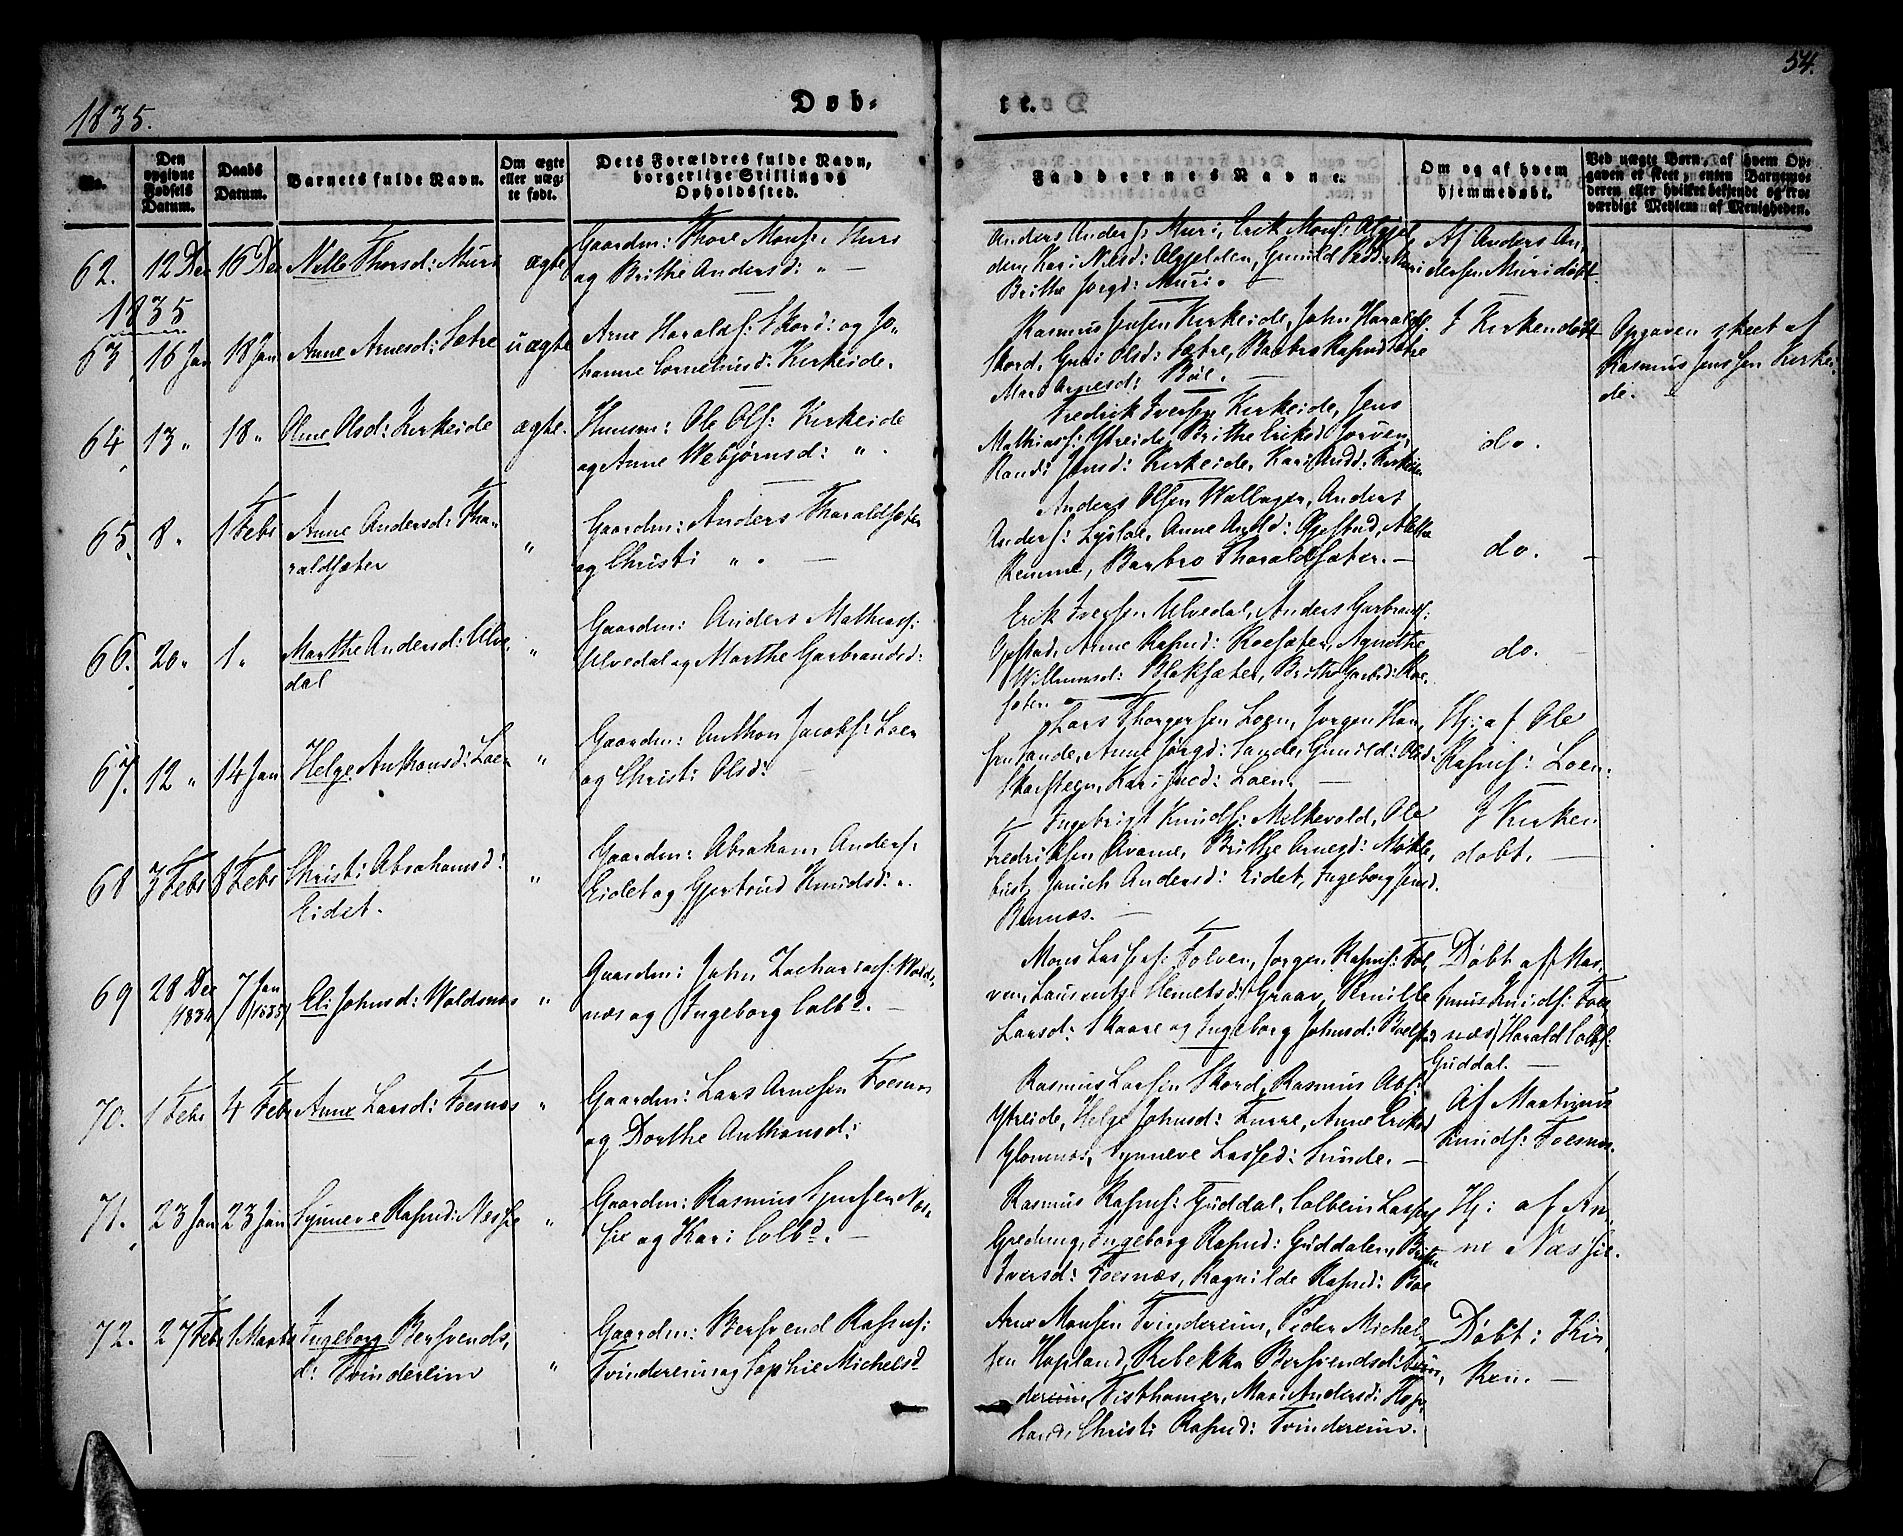 54.
1835.
Døb-
te.
No.
Den opgivne Fødsels Datum.
Daabs Datum.
Barnets fulde Navn.
Om ægte eller uægte født.
Dets Forældres fulde Navn, borgerlige Stilling og Opholdssted.
Faddernes Navne.
Om og af hvem hjemmedøbt.
Ved uægte Børn, af hvem Opgaven er skeet, enten Barnemoderen eller hvilket bekjendt og troværdigt Medlem af Menigheden.
62. 12 Dec 16 Dec Nille Thorsd: Muri ægte
Gaardm: Thore Mons: Muri
og Brithe Andersd: " —
Anders Anders: Muri, Erik Mons: Olgjel
den, Kari Nilsd: Olgjelden, Gunild
Brithe Jørgd: Muri.
Af Anders An-
dersen Muri døbt.
1835
63 16 Jan 18 Jan Anne Arnesd: Sætre uægte
Arne Haralds: Skord: og Jo-
hanne Corneliusd: Kirkeide.
Rasmus Jensen Kirkeide, John Haralds:
Skord, Guri Olsd: Sætre, Barbro Rasmd: Sætre
Mari Arnesd: Böe.
I Kirken døbt
Opgaven skeet af
Rasmus Jenssen Kirkei-
de.
64 13 " 18 " Olsd: Kirkeide ægte.
Huusm: Ole Ols: Kirkeide
og Anne Webjørnsd: " .
Fredrik Iversen Kirkeide, Jens
Mathias: Ystreide, Brithe Eriksd:
Randi Jensd: Kirkeide, Kari Kirkeide
do.
65. 8 " 1 Febr Anne Andersd: Tha-
raldsæter "
Gaardm: Anders Tharaldsæter
og Christi " " —
Anders Olsen Wollager, Anders
Anders: Anne Gjestad,
Remme, Barbro Tharaldsæter. —
do. —
66. 20 " 1 " Marthe Andersd: Ulve-
dal "
Gaardm: Anders Mathias:
Ulvedal og Marthe Garbrandsd:
Erik Iversen Ulvedal, Anders Garbrands:
Opstad, Anne Rasmd: Roesæter, Agnethe
Willumsd: Blaksæter, Brithe Garbd: Roe-
sæter.
do.
67. 12 " 14 Jan Helge Anthonsd: Loen "
Gaardm: Anthon Jacobs: Loen
og Christi Olsd: —
Lars Thorgersen Loen, Jørgen Han-
sen Sande, Anne Jørgd: Sande, Gunild: Olsd:
Skarsteen, Kari Loen. —
Hj: af Ole
Rasms: Loen.
68 3 Febr 8 Febr Christi Abrahamsd:
Eidet. "
Gaardm: Abraham Anders:
Eidet og Gjertrud Knudsd: ".
Ingebrigt Knuds: Melkevold, Ole
Fredriksen Avame, Brithe Arnesd: Mykle-
bust, Janich Andersd: Eidet, Ingeborg Jensd.
—
I Kirken
døbt. —
69 28 Dec (1834) 7 Jan (1835) Eli Johnsd: Woldsnæs "
Gaardm: John Zacharias: Wolds-
næs og Ingeborg Colbd. —
Mons Lasses: Folven, Jørgen Rasms: Fol-
ven, Laurentze Graav, Pernille
Larsd: Skaare og Ingeborg Johnsd:
Døbt af Ras-
mus Knuds: Foes-
næs / Harald Colbs:
Guddal. —
70. 1 Febr 4 Febr Anne Larsd: Foesnæs "
Gaardm: Lars Arnesen Foesnæs
og Dorthe Anthonsd:
Rasmus Larsen Skord, Rasmus
Ystreide, Helge Johnsd: Furre, Anne Eriksd
Glomnæs, Synneve Lassed: Sunde. —
Af Martinus
Knuds: Foesnæs.
71. 23 Jan 23 Jan Synneve Rasmd: Nessje "
Gaardm: Rasmus Nes-
sje og Kari Colbd. —
Rasmus Rasms: Guddal, Colbein Lasses:
Gredung, Ingeborg Rasmd: Guddalen, Brithe
Iversd: Foesnæs, Ragnilde Rasmd: Böe
Hj: af An-
ne Næssje.
72. 27 Febr 1 Marts Ingeborg Bersvends-
d: Tvindereim "
Gaardm: Bersvend Rasms:
Tvindereim og Sophie Michelsd
Arne Monsen Tvindereim, Peder Michel-
sen Hopland, Rebekka Bersvendsd: Tvin-
dereim, Fisthamer, Mari Andersd: Hop-
land, Christi Rasmd: Tvindereim.
Døbt i Kir-
ken. —